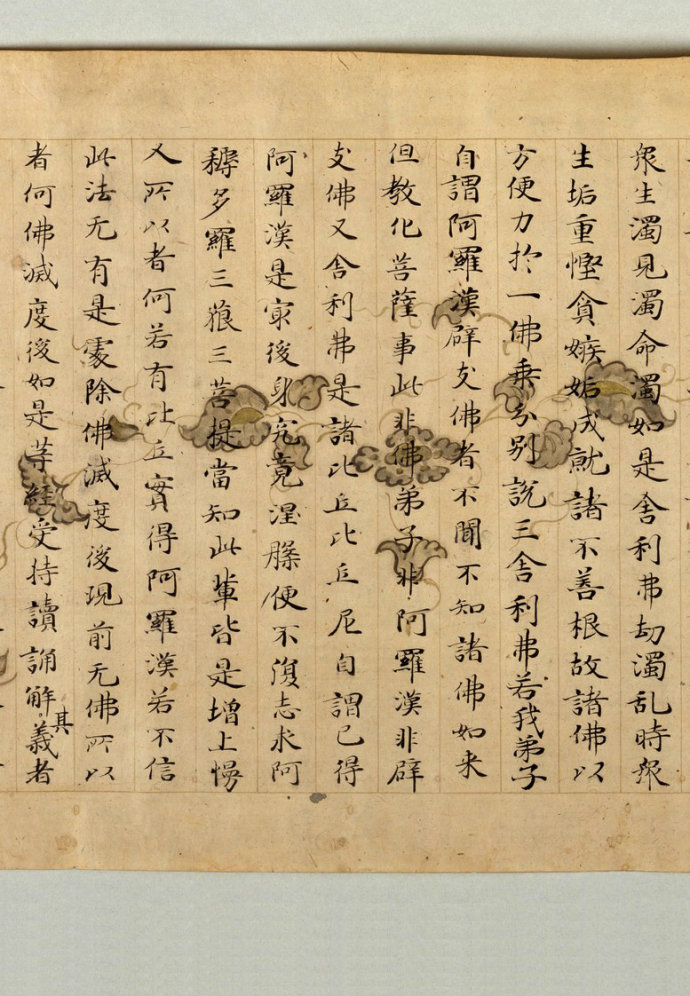 衆生濁見濁命濁如是舍利弗劫濁乱時衆
生垢重慳貪嫉妬成就諸不善根故諸佛以
方便力扵一佛乗分别說三舍利弗若我弟子
自謂阿羅漢辟支佛者不聞不知諸佛如来
但教化菩薩事此非佛弟子非阿羅漢非辟
支佛又舍利弗是諸比丘比丘尼自謂已得
阿羅漢是冣後身究竟涅槃便不復志求阿
耨多羅三藐三菩提當知此輩皆是増上慢
人所以者何若有比丘實得阿羅漢若不信
此法无有是處除佛滅度後現前无佛所以
者何佛滅度後如是等經受持讀誦解其義者